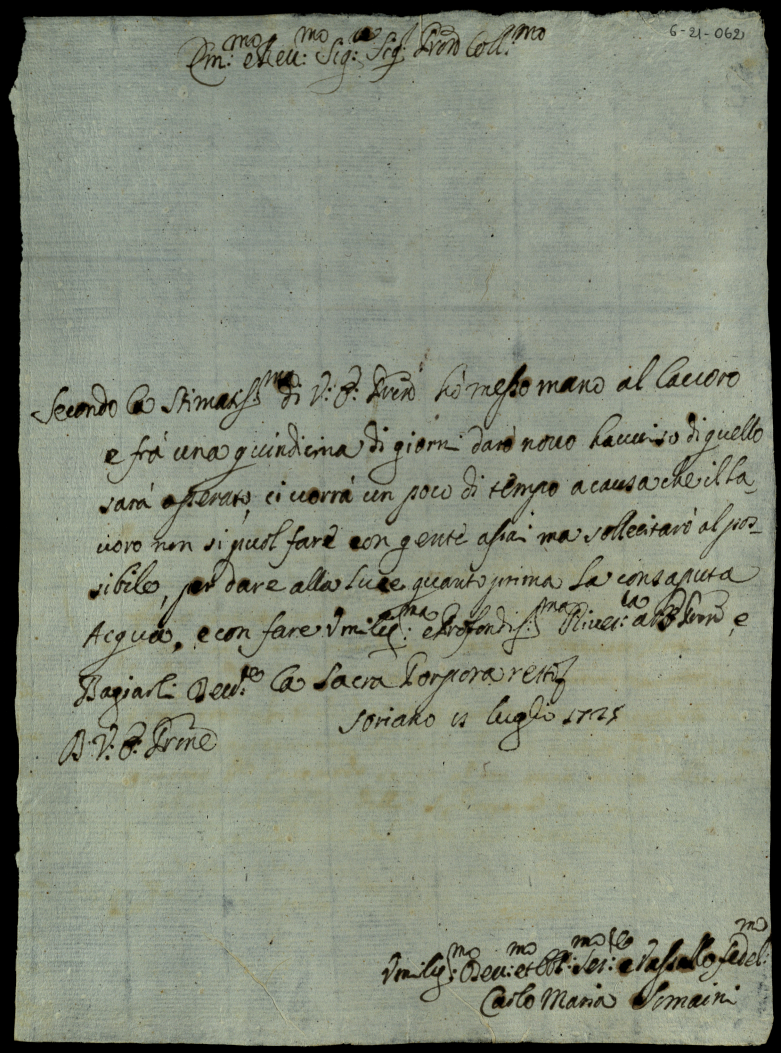 6-21-062
Em:mo e Rev:mo Sig:re Sig:re Prōn Coll:mo
Secondo la Stimatiss:ma di V: E: Prōn hò messo mano al lavoro
e frà una quindicina di giorni darò novo havviso di quello
sarà operato, ci vorrà un poco di tempo a causa che il la_
voro non si puol fare con gente assai ma sollecitarò al pos_
sibile, per dare alla luce quanto prima la consaputa
Acqua, e con fare Vmilis:ma e Profondis:ma River:za a V: E: Prōn e
Bagiarli Dev:te la Sacra Porpora resto
Soriano 15 luglio 1725
D V: E: Prōne
Vmilis:mo Dev:mo et Obl:mo Ser:re e Vassallo fedel:mo
Carlo Maria Simaini